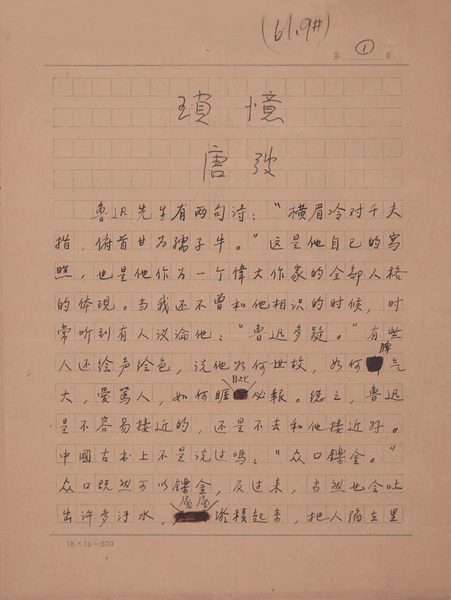 (61.9#)
第 ① 页
瑣憶
唐弢
魯迅先生有两句诗："横眉冷对千夫
指，俯首甘为孺子牛。"这是他自己的写
照，也是他作为一个偉大作家的全部人格
的体现。当我还不曾和他相识的时候，时
常听到有人议论他："魯迅多疑。"有些
人还绘声绘色，说他如何世故，如何脾气
大，爱骂人，如何睚眦必報。總之，魯迅
是不容易接近的，还是不去和他接近好。
中國古书上不是说过吗："众口鑠金。"
众口既然可以鑠金，反过来，当然也会吐
出许多汙水，屢屢淤積起来，把人淹在里
18×15=270